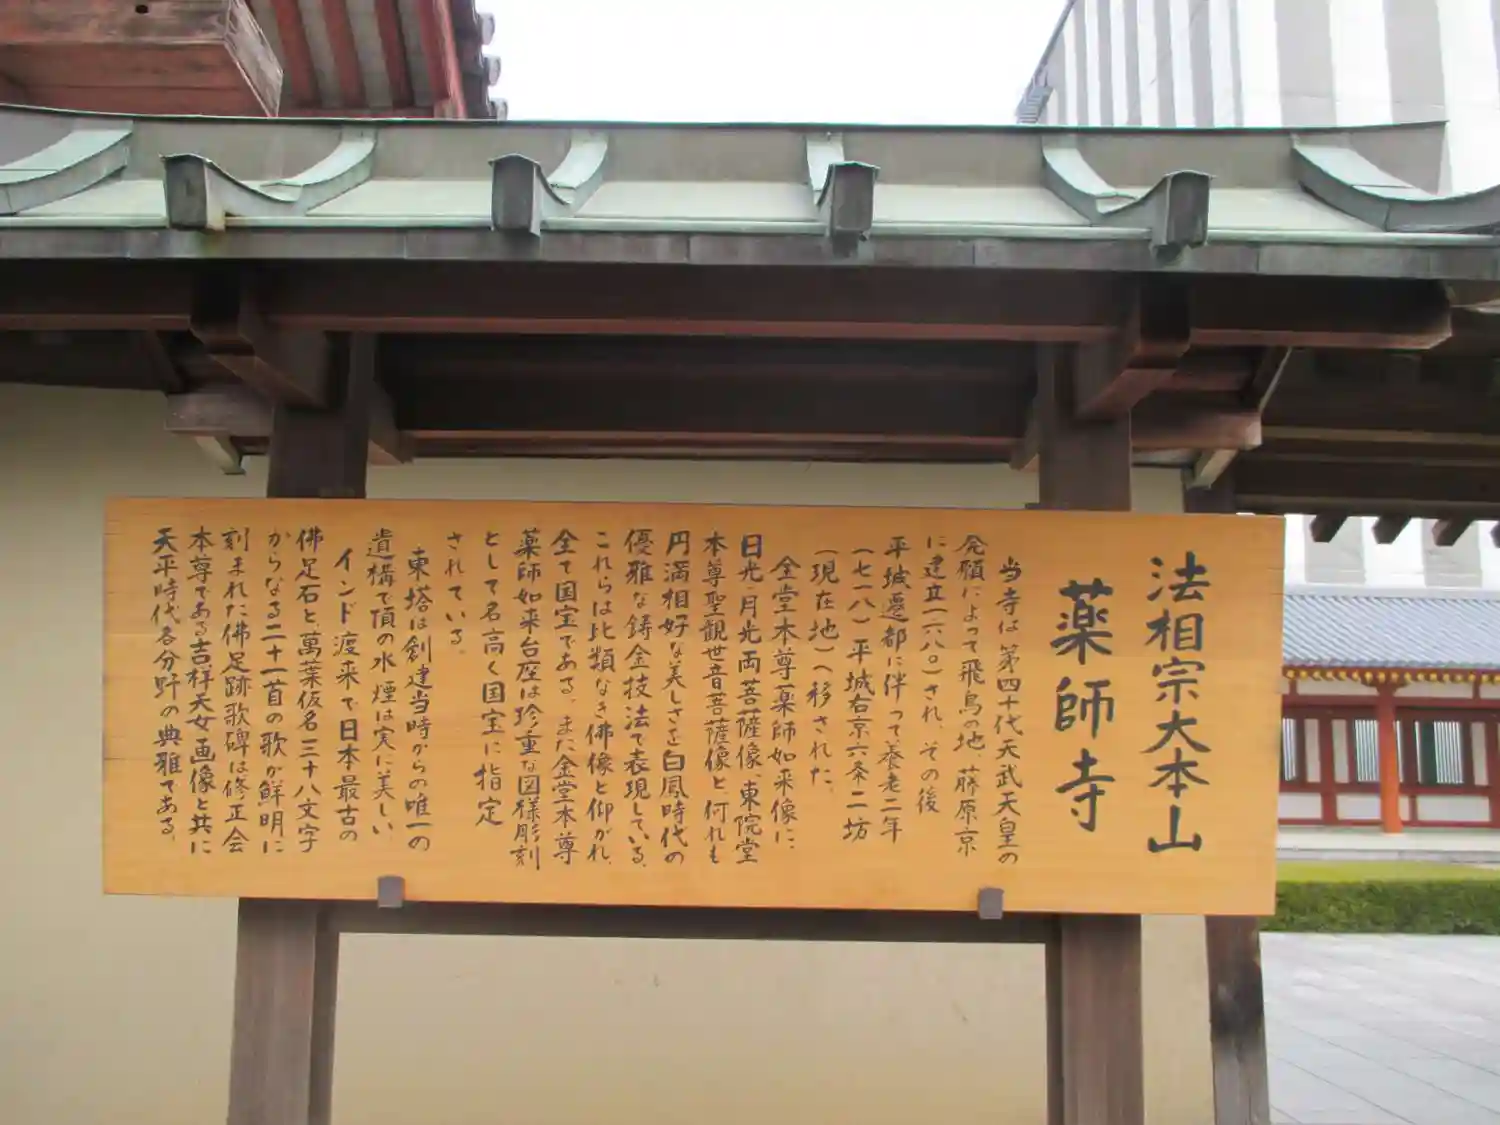 法相宗大本山
薬師寺
当寺は第四十代天武天皇の
発願によって飛鳥の地、藤原京
に建立（六八〇）され、その後
平城遷都に伴って養老二年
（七一八）平城右京六条二坊
（現在地）へ移された。
金堂本尊薬師如来像に、
日光・月光両菩薩像、東院堂
本尊聖観世音菩薩像と何れも
円満相好な美しさを白鳳時代の
優雅な鋳金技法で表現している。
これらは比類なき佛像と仰がれ、
全て国宝である。また金堂本尊
薬師如来台座は珍重な図様彫刻
として名高く国宝に指定
されている。
東塔は創建当時からの唯一の
遺構で頂の水煙は実に美しい。
インド渡来で日本最古の
佛足石と、萬葉仮名三十八文字
からなる二十一首の歌が鮮明に
刻まれた佛足跡歌碑は修正会
本尊である吉祥天女画像と共に
天平時代各分野の典雅である。